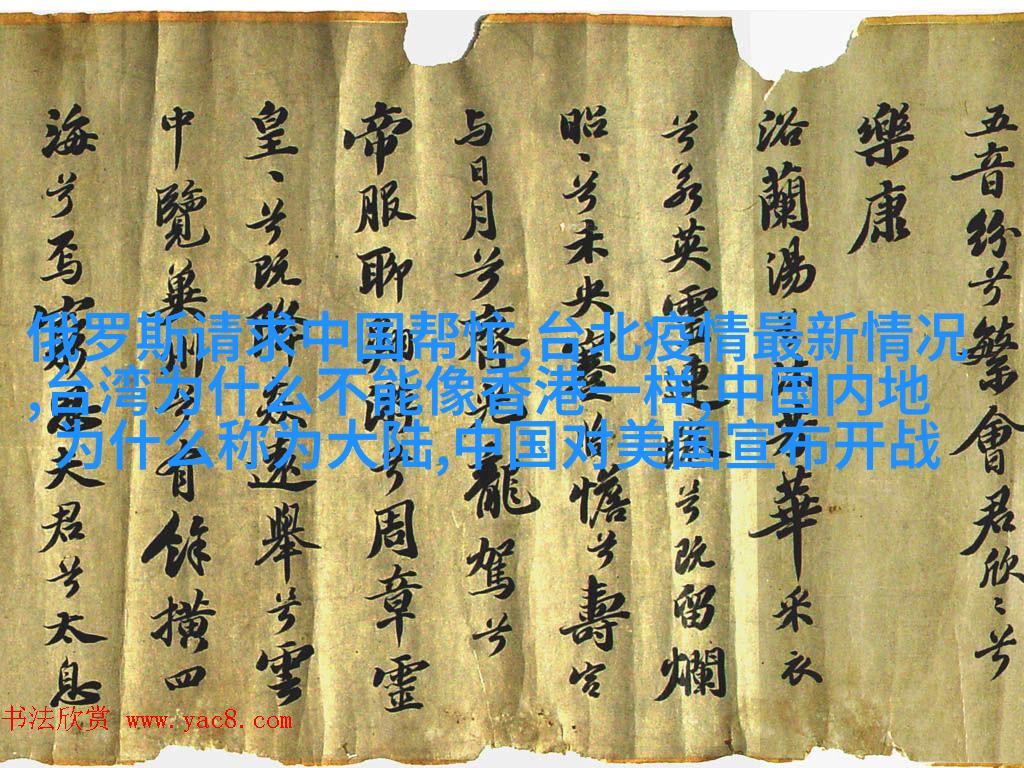 五音紛兮繁會君欣〻兮
樂康
浴蘭湯芳華采衣
兮若英靈連蜷兮既留爛
昭〻兮未央蹇將憺兮壽宮
与日月兮齊光龍駕兮
帝服聊翱兮周章靈
皇〻兮既降猋遠舉兮雲
中覽冀州兮有餘横四
海兮焉窮思夫君兮太息
俄罗斯请求中国帮忙,台北疫情最新情况
,台湾为什么不能像香港一样,中国内地
为什么称为大陆,中国对美国宣布开战
书法欣赏 www.yac8.com